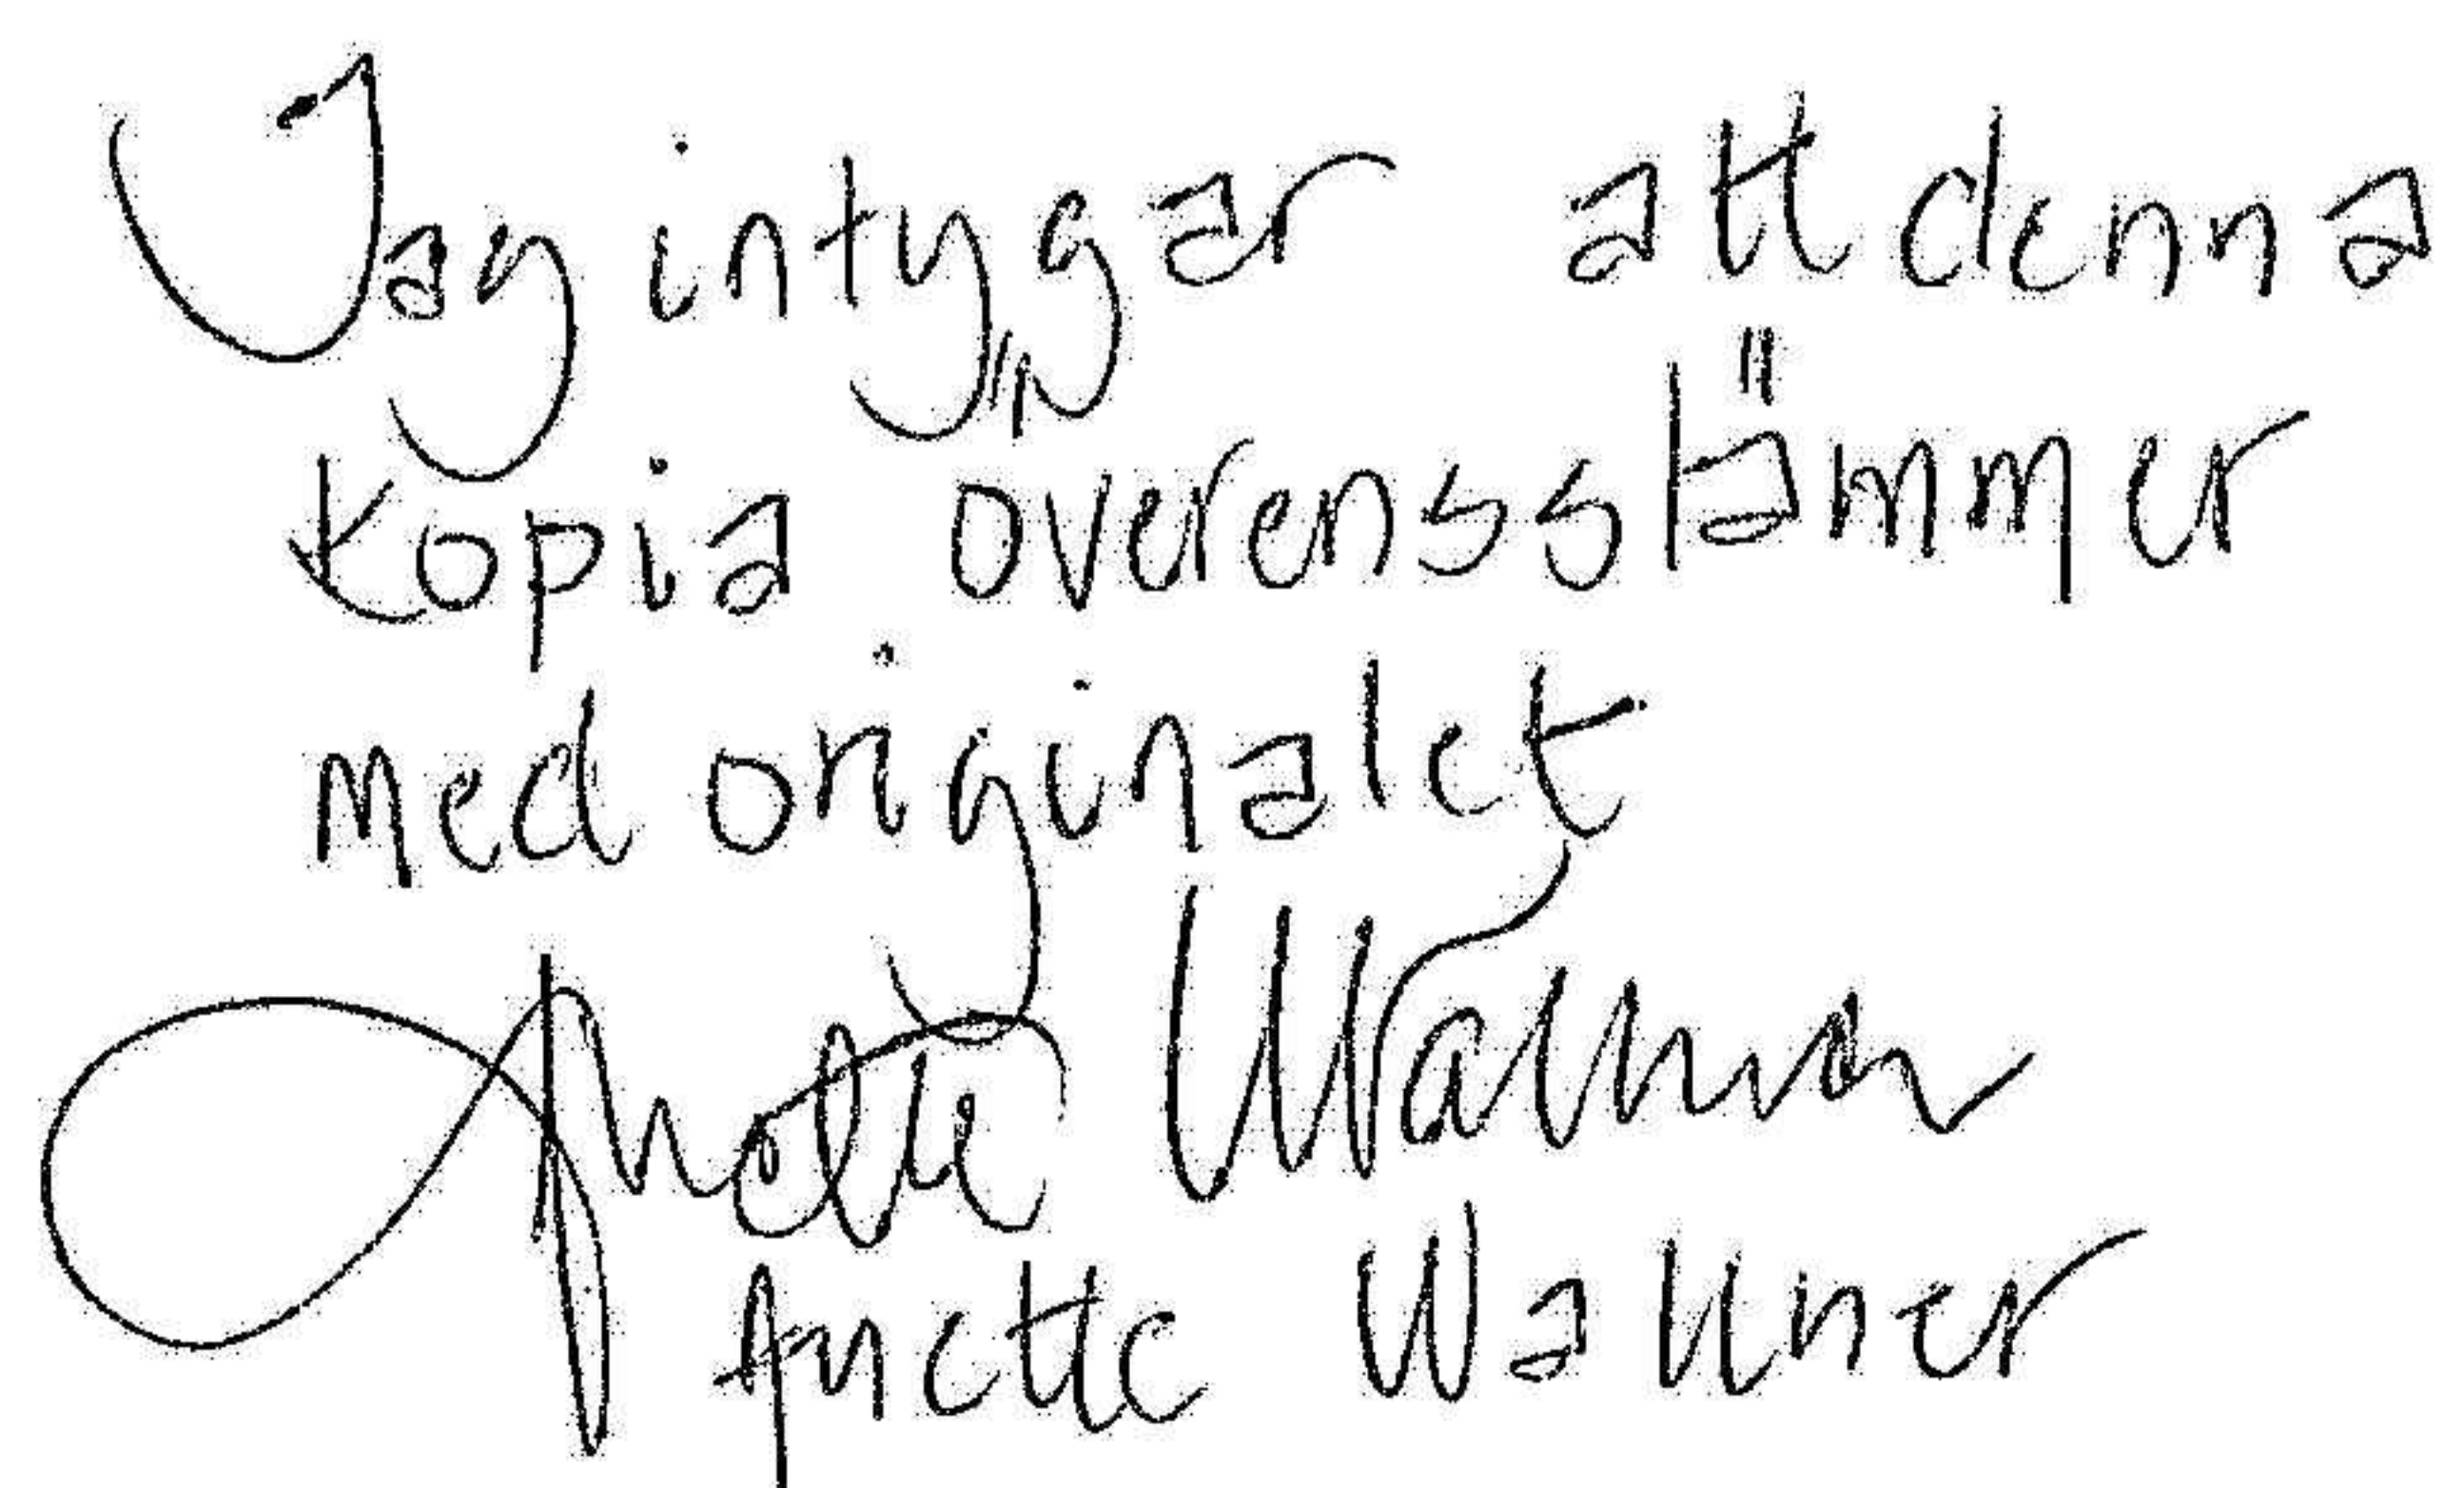 Jag intygar att denna
kopia overensstämmer
med originalet
Anette Wallner
Anette Wallner